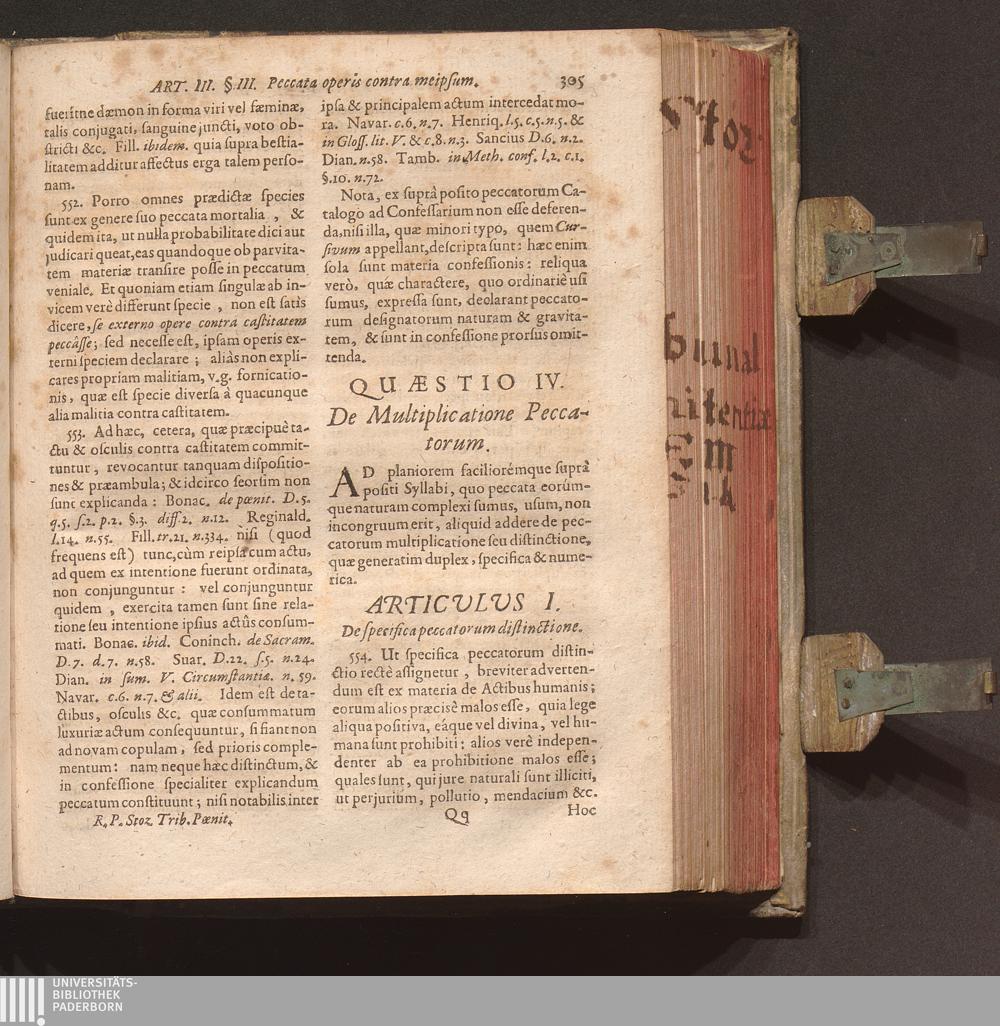 ART. III. §. III. Peccata operis contra meipsum. 305
fuerítne dæmon in forma viri vel fæminæ,
talis conjugati, sanguine juncti, voto ob-
stricti &c. Fill. ibidem. quia supra bestia-
litatem additur affectus erga talem perso-
nam.
552. Porro omnes prædictæ species
sunt ex genere suo peccata mortalia, &
quidem ita, ut nulla probabilitate dici aut
judicari queat, eas quandoque ob parvita-
tem materiæ transire posse in peccatum
veniale. Et quoniam etiam singulæ ab in-
vicem verè differunt specie, non est satis
dicere, se externo opere contra castitatem
peccâsse; sed necesse est, ipsam operis ex-
terni speciem declarare; aliàs non expli-
cares propriam malitiam, v.g. fornicatio-
nis, quæ est specie diversa â quacunque
alia malitia contra castitatem.
553. Ad hæc, cetera, quæ præcipuè ta-
ctu & osculis contra castitatem commit-
tuntur, revocantur tanquam dispositio-
nes & præambula; & idcirco seorsim non
sunt explicanda: Bonac. de pœnit. D.5.
q.5. s.2. p.2. §.3. diff.2. n.12. Reginald.
l.14. n.55. Fill. tr.21. n.334. nisi (quod
frequens est) tunc, cùm reipsa cum actu,
ad quem ex intentione fuerunt ordinata,
non conjunguntur: vel conjunguntur
quidem, exercita tamen sunt sine rela-
tione seu intentione ipsius actûs consum-
mati. Bonac. ibid. Coninch. de Sacram.
D.7. d.7. n.58. Suar. D.22. s.5. n.24.
Dian. in sum. V. Circumstantiæ. n.59.
Navar. c.6. n.7. & alii. Idem est de ta-
ctibus, osculis &c. quæ consummatum
luxuriæ actum consequuntur, si fiant non
ad novam copulam, sed prioris comple-
mentum: nam neque hæc distinctum, &
in confessione specialiter explicandum
peccatum constituunt; nisi notabilis inter
R. P. Stoz Trib. Pœnit.
ipsa & principalem actum intercedat mo-
ra. Navar. c.6. n.7. Henriq. l.5. c.5. n.5. &
in Gloss. lit. V. & c.8. n.3. Sancius D.6. n.2.
Dian. n.58. Tamb. in Meth. conf. l.2. c.1.
§.10. n.72.
Nota, ex suprà posito peccatorum Ca-
talogo ad Confessarium non esse deferen-
da, nisi illa, quæ minori typo, quem Cur-
sivum appellant, descripta sunt: hæc enim
sola sunt materia confessionis: reliqua
verò, quæ charactere, quo ordinariè usi
sumus, expressa sunt, declarant peccato-
rum designatorum naturam & gravita-
tem, & sunt in confessione prorsus omit-
tenda.
QUÆSTIO IV.
De Multiplicatione Pecca-
torum.
AD planiorem faciliorémque suprà
positi Syllabi, quo peccata eorúm-
que naturam complexi sumus, usum, non
incongruum erit, aliquid addere de pec-
catorum multiplicatione seu distinctione,
quæ generatim duplex, specifica & nume-
rica.
ARTICULUS I.
De specifica peccatorum distinctione.
554. Ut specifica peccatorum distin-
ctio rectè assignetur, breviter adverten-
dum est ex materia de Actibus humanis;
eorum alios præcisè malos esse, quia lege
aliqua positiva, eáque vel divina, vel hu-
mana sunt prohibiti: alios verè indepen-
denter ab ea prohibitione malos esse;
quales sunt, qui jure naturali sunt illiciti,
ut perjurium, pollutio, mendacium &c.
Qq Hoc
Stoz
bunal
nitentiæ
UNIVERSITÄTS-
BIBLIOTHEK
PADERBORN